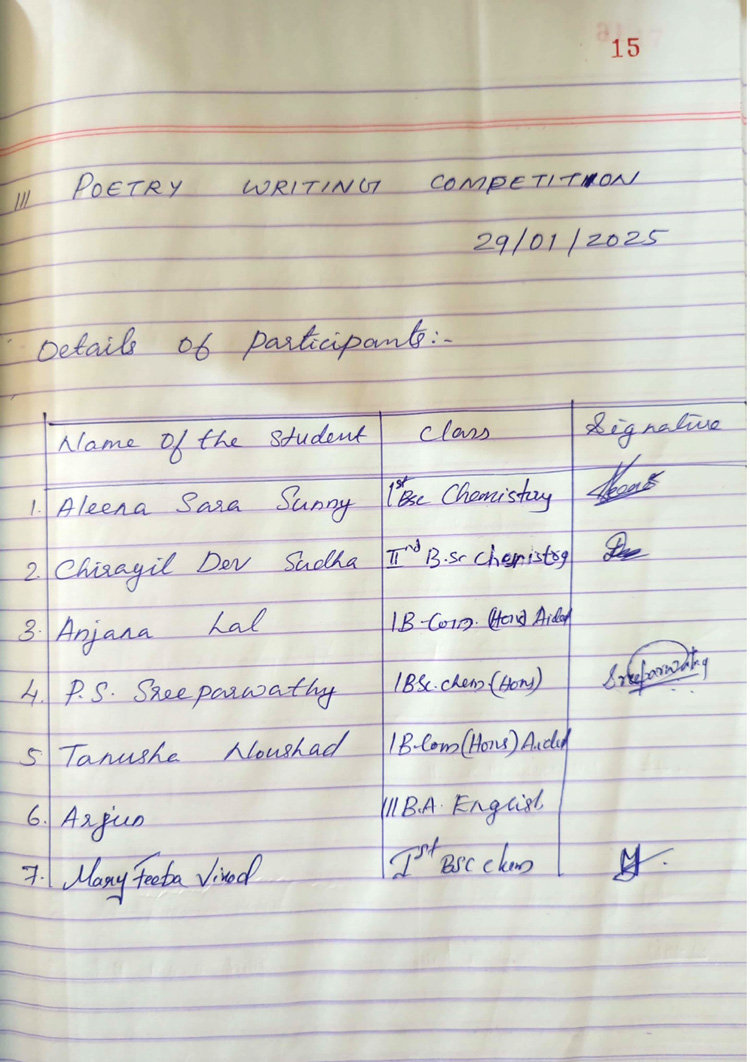 15
III POETRY WRITING COMPETITION
29/01/2025
Details of participants:-
Name of the student Class Signature
1. Aleena Sara Sunny 1st Bsc Chemistry
2. Chirayil Dev Sudha IInd B.sc Chemistry
3. Anjana Lal I B-Com. (Hons) Aided
4. P.S. Sreeparwathy I BSc. chem (Hons) Sreeparwathy
5 Tanusha Noushad I B.Com (Hons) Aided
6. Arjun III B.A. English
7. Mary Feeba Vinod Ist BSC chem